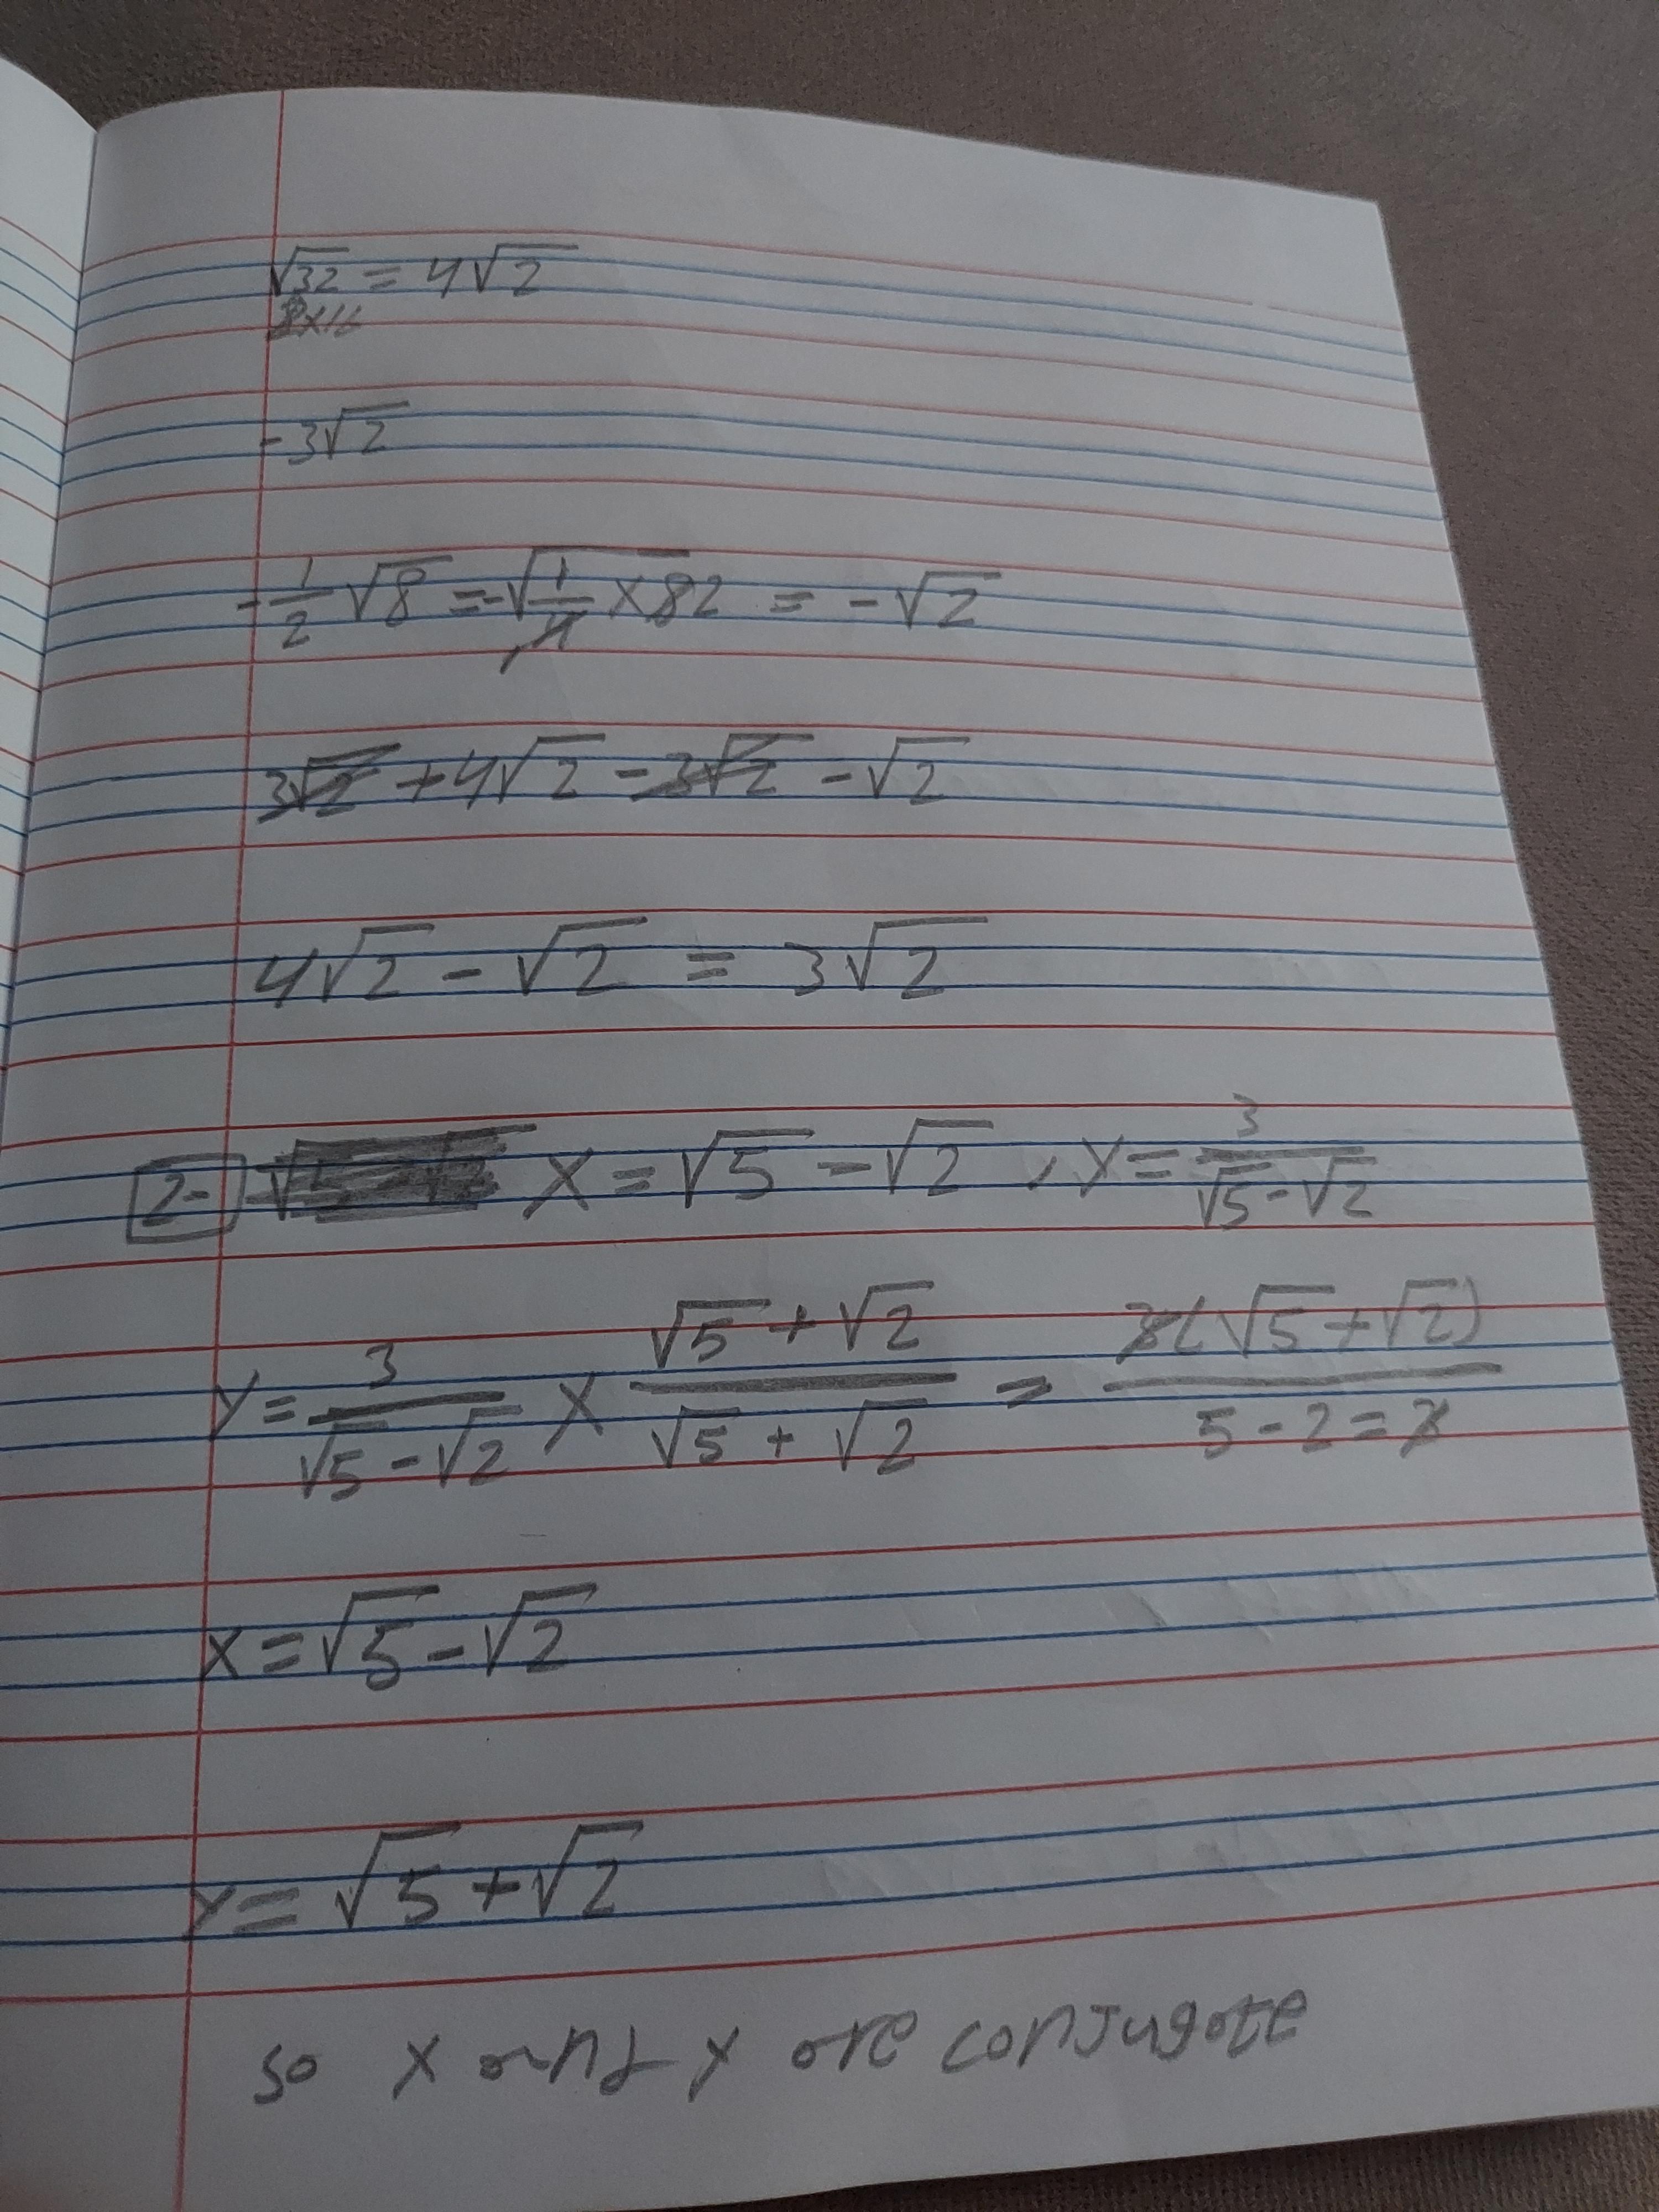 √32 = 4√2
2×16
-3√2
-1/2 √8 = -√(1/4 × 8 2) = -√2
3√2 + 4√2 - 3√2 - √2
4√2 - √2 = 3√2
2- √5 - √2 X = √5 - √2 , y = 3/(√5 - √2)
y = 3/(√5 - √2) X (√5 + √2)/(√5 + √2) = 3(√5 + √2)/(5 - 2 = 3)
x = √5 - √2
y = √5 + √2
so x and y are conjugate